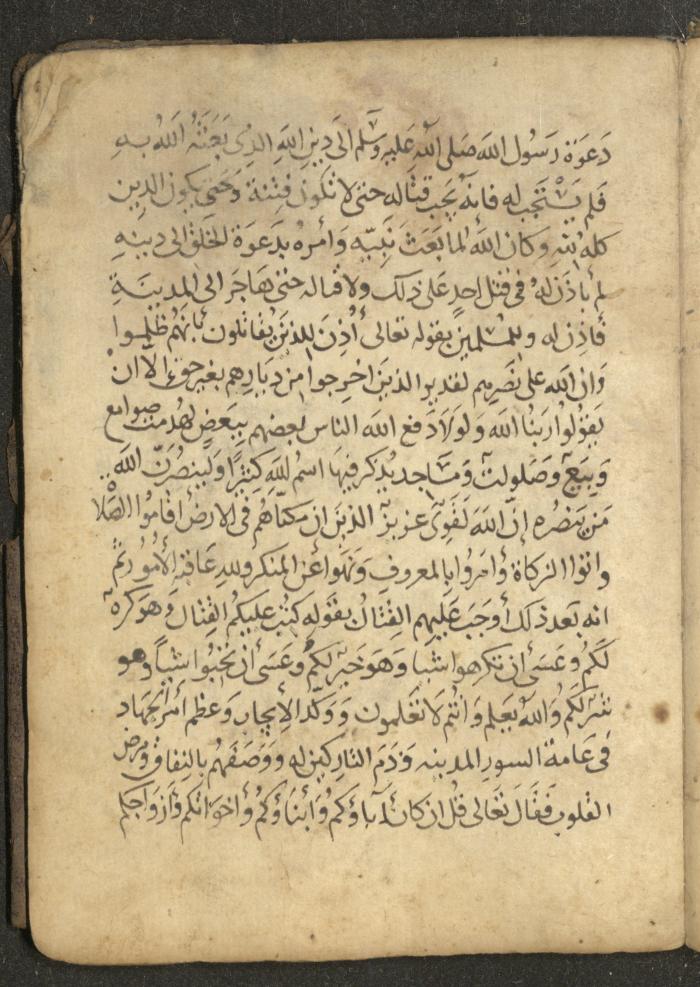 دعوة رسول الله صلى الله عليه وسلم الى دين الله الذى بعثه الله به
فلم يستجب له فانه يجب قتاله حتى لا تكون فتنة وحتى يكون الدين
كله لله وكان الله لما بعث نبيه وأمره بدعوة الخلق الى دينه
لم ياذن له فى قتل احد على ذلك ولا قتاله حتى هاجر الى المدينة
فأذن له وللمسلمين بقوله تعالى أذن للذين يقاتلون بأنهم ظلموا
وان الله على نصرهم لقدير الذين اخرجوا من ديارهم بغير حق الا ان
يقولوا ربنا الله ولولا دفع الله الناس بعضهم ببعض لهدمت صوامع
وبيع وصلوات ومساجد يذكر فيها اسم الله كثيرا ولينصرن الله
من ينصره إن الله لقوى عزيز الذين ان مكناهم فى الارض أقاموا الصلاة
واتوا الزكاة وأمروا بالمعروف ونهوا عن المنكر ولله عاقبة الأمور ثم
انه بعد ذلك أوجب عليهم القتال بقوله كتب عليكم القتال وهو كره
لكم وعسى أن تكرهوا شيا وهو خير لكم وعسى أن تحبوا شيأ وهو
شر لكم والله يعلم وانتم لا تعلمون ووكد الإيجاب وعظم أمر الجهاد
فى عامة السور المدينه وذم التاركين له ووصفهم بالنفاق ومرض
القلوب فقال تعالى قل ان كان آباؤكم وأبناؤكم وأخوانكم وأزواجكم